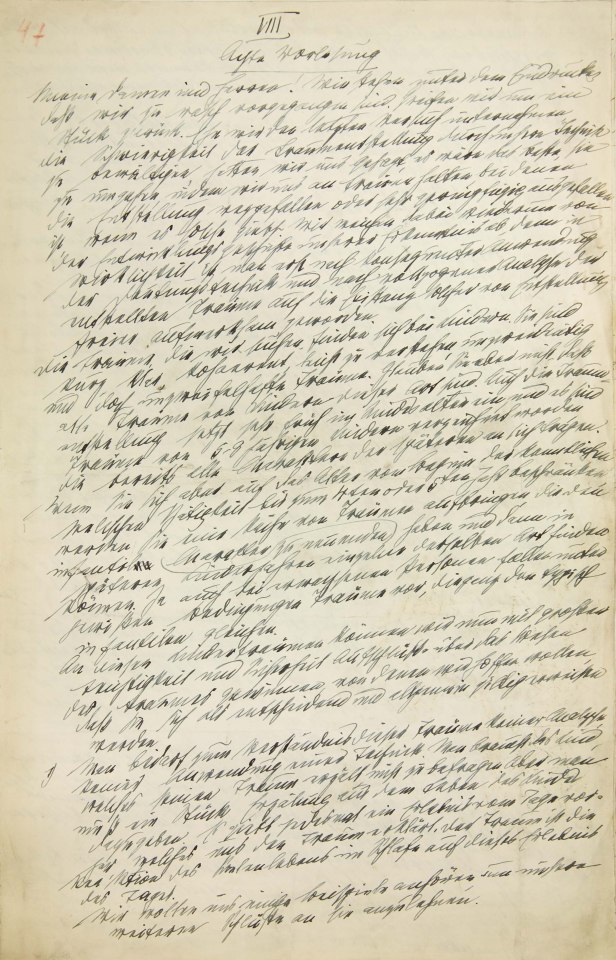 47
VIII
Achte Vorlesung
Meine Damen und Herren! Wir stehen unter dem Eindrucke,
daß wir zu rasch vorgegangen sind. Greifen wir um ein
Stück zurück. Ehe wir den letzten Versuch unternahmen
die Schwierigkeit der Traumentstellung durch unsere Technik
zu bewältigen hatten wir uns gesagt, es wäre das beste sie
zu umgehen indem wir uns an Träume halten bei denen
die Entstellung weggefallen oder sehr geringfügig ausgefallen
ist, wenn es solche giebt. Wir weichen dabei wiederum von
der Entwicklungsgeschichte unserer Erkenntnis ab, denn in
Wirklichkeit ist man erst nach konsequenter Anwendung
der Deutungstechnik und nach vollzogener Analyse der
entstellten Träume auf die Existenz solcher von Entstellung
freier aufmerksam geworden.
Die Träume, die wir suchen, finden sich bei Kindern. Sie sind
kurz, klar, kohärent, leicht zu verstehen, unzweideutig
und doch unzweifelhafte Träume. Glauben Sie aber nicht, daß
alle Träume von Kindern dieser Art sind. Auch die Traum-
entstellung setzt sehr früh im Kindesalter ein, und es sind
Träume von 5-8 jährigen Kindern verzeichnet worden
die bereits alle Charaktere der späteren an sich tragen.
Wenn Sie sich aber auf das Alter vom Beginn der kenntlichen
seelischen Tätigkeit bis zum vierten oder 5ten Jahr beschränken
werden Sie eine Reihe von Träumen aufbringen die den
infantil zu nennenden Charakter haben und dann in
späteren Kinderjahren einzelne derselben Art finden
können. Ja auch bei erwachsenen Personen fallen unter
gewissen Bedingungen Träume vor, die ganz den typisch
infantilen gleichen.
An diesen Kinderträumen können wir nun mit großer
Leichtigkeit und Sicherheit Aufschlüsse über das Wesen
des Traumes gewinnen von denen wir hoffen wollen
daß sie sich als entscheidend und allgemein giltig erweisen
werden.
Man bedarf zum Verständnis dieser Träume keiner Analyse
keiner Anwendung einer Technik. Man braucht das Kind,
welches seinen Traum erzählt nicht zu befragen. Aber man
muß ein Stück Erzählung aus dem Leben des Kindes
dazugeben. Es giebt jedesmal ein Erlebnis vom Tage vor-
her, welches uns den Traum erklärt. Der Traum ist die
Reaktion des Seelenlebens im Schlafe auf dieses Erlebnis
des Tages.
Wir wollen uns einige Beispiele anhören um unsere
weiteren Schlüsse an sie anzulehnen.